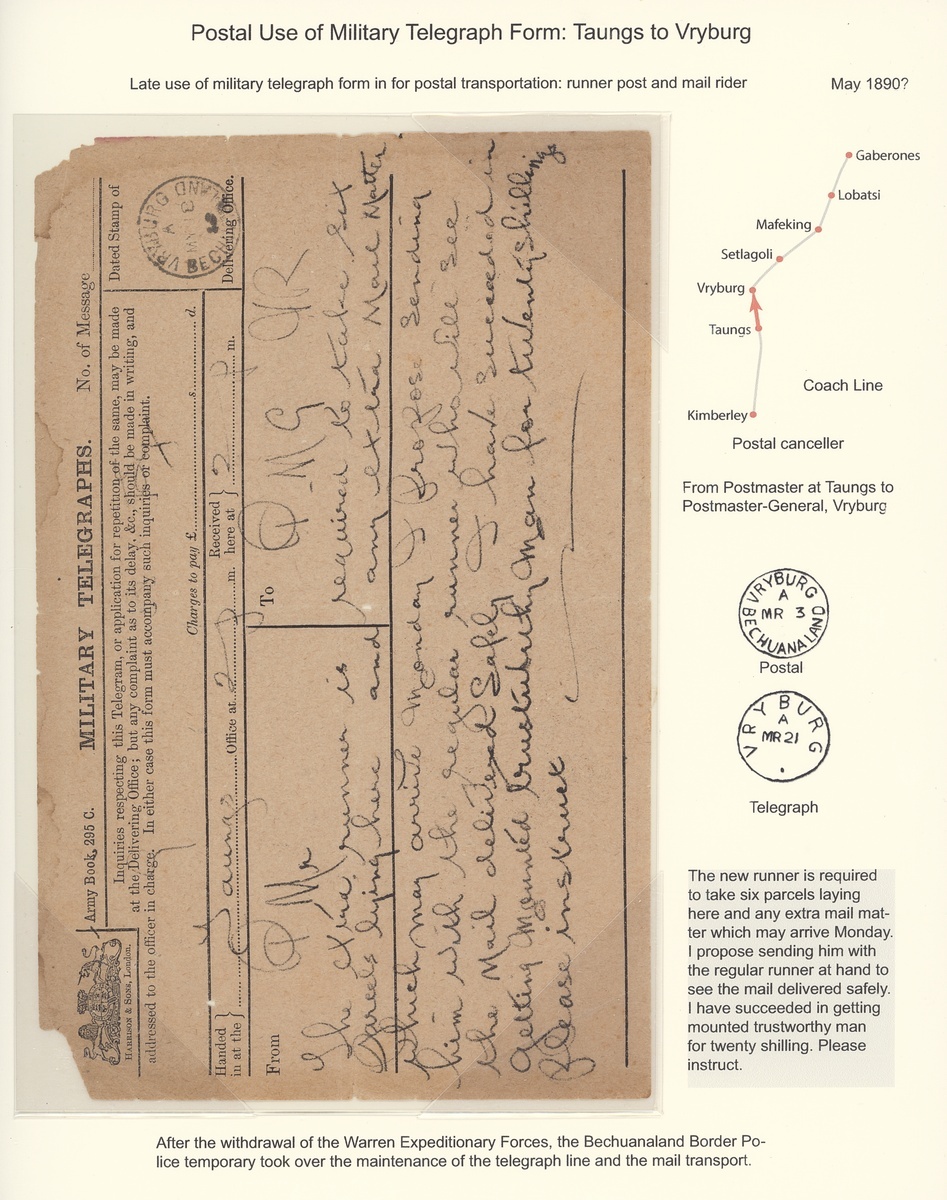 Postal Use of Military Telegraph Form: Taungs to Vryburg
Late use of military telegraph form in for postal transportation: runner post and mail rider
May 1890?
Army Book, 295 C.
MILITARY TELEGRAPHS.
No. of Message
HARRISON & SONS, London.
Inquiries respecting this Telegram, or application for repetition of the same, may be made
at the Delivering Office; but any complaint as to its delay, &c., should be made in writing, and
addressed to the officer in charge. In either case this form must accompany such inquiries or complaint.
Dated Stamp of
VRYBURG
A
BECHUANALAND
Delivering Office.
Charges to pay £ s. d.
Handed in at the } Taungs Office at m.
Received here at } m.
From P Mr
To P-MG
The extra runner is
parcels lying here and
required to take six
any extra Mail Matter
which may arrive Monday I propose sending
him with the regular runner who will see
the Mail delivered safely I have succeeded in
getting mounted trustworthy man for twenty shillings
Please instruct
Gaberones
Lobatsi
Mafeking
Setlagoli
Vryburg
Taungs
Kimberley
Coach Line
Postal canceller
From Postmaster at Taungs to
Postmaster-General, Vryburg
VRYBURG
A
MR 3
BECHUANALAND
Postal
VRYBURG
A
MR 21
Telegraph
The new runner is required
to take six parcels laying
here and any extra mail mat-
ter which may arrive Monday.
I propose sending him with
the regular runner at hand to
see the mail delivered safely.
I have succeeded in getting
mounted trustworthy man
for twenty shilling. Please
instruct.
After the withdrawal of the Warren Expeditionary Forces, the Bechuanaland Border Po-
lice temporary took over the maintenance of the telegraph line and the mail transport.